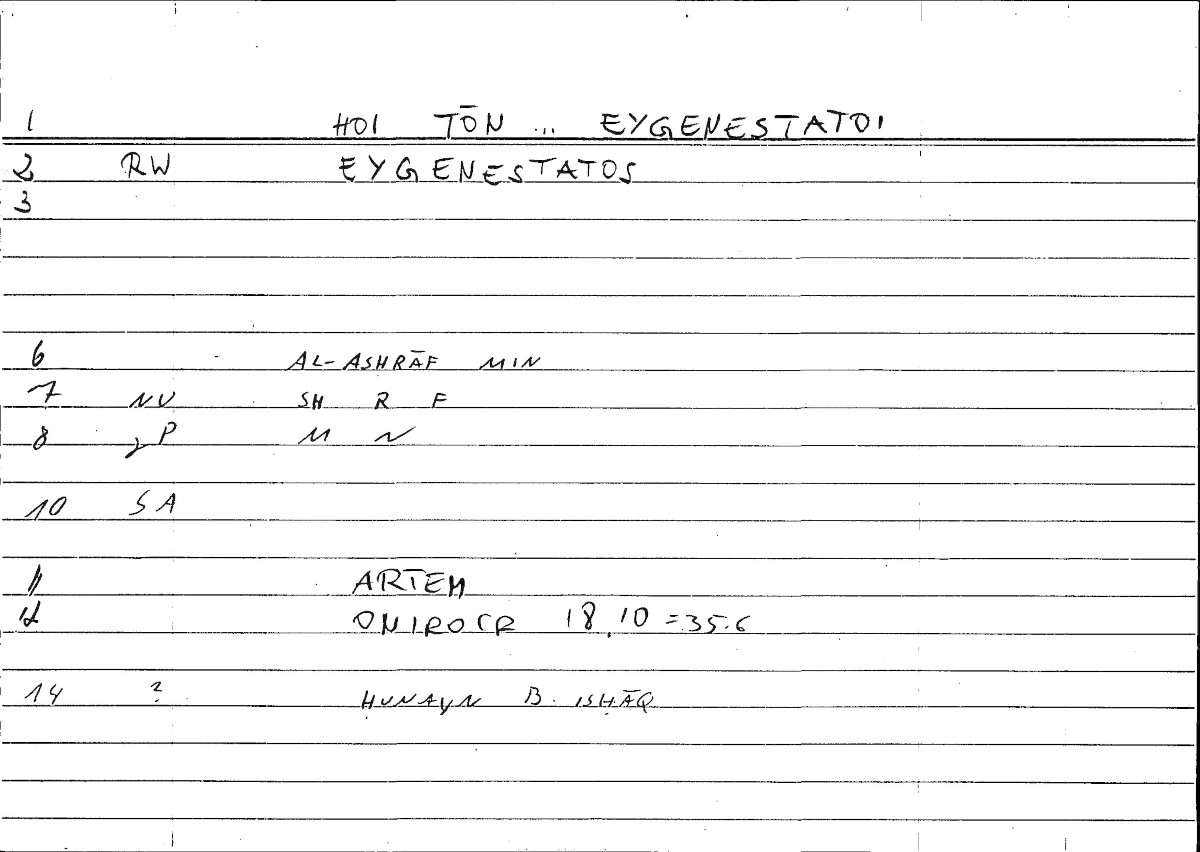 1 HOI TŌN ... EYGENESTATOI
2 RW EYGENESTATOS
3
6 AL-ASHRĀF MIN
7 NV SH R F
8 P M N
10 SA
11 ARTEM
12 ONIROCR 18,10 = 35.6
14 ? ḤUNAYN B. ISḤĀQ